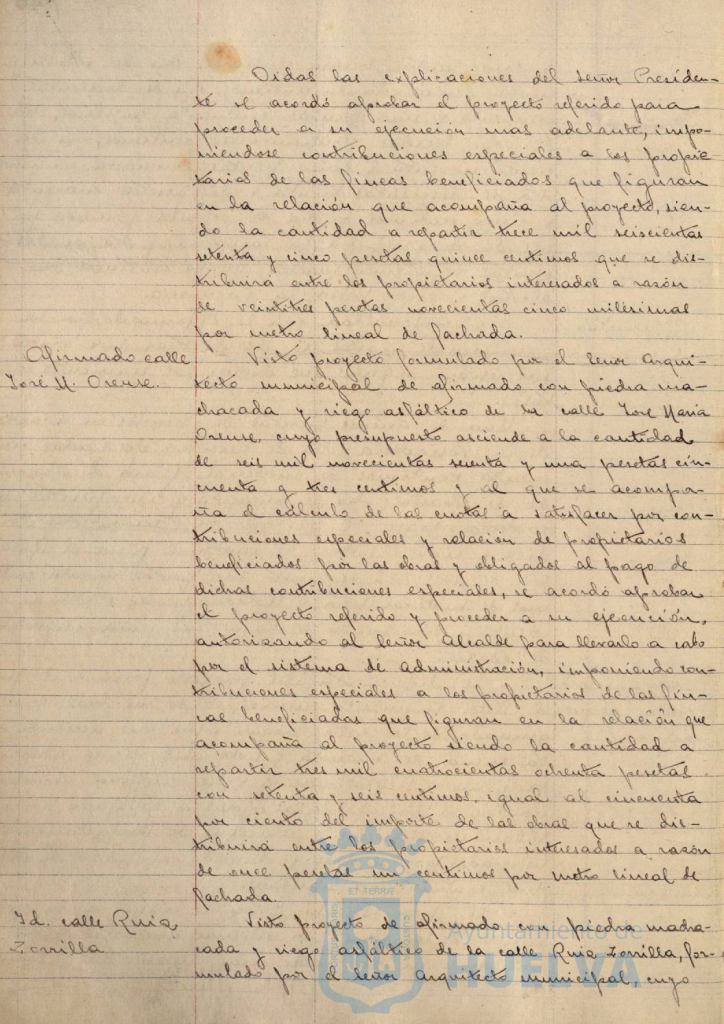 Oidas las explicaciones del señor Presiden-
te se acordó aprobar el proyecto referido para
proceder a su ejecución mas adelante, impo-
niendose contribuciones especiales a los propie
tarios de las fincas beneficiados que figuran
en la relación que acompaña al proyecto, sien-
do la cantidad a repartir trece mil seiscientas
setenta y cinco pesetas quince centimos que se dis-
tribuirá entre los propietarios interesados a razón
de veintitres pesetas novecientas cinco milésimas
por metro lineal de fachada.
Afirmado calle
José M. Orense.
Visto proyecto formulado por el señor Arqui-
tecto municipal de afirmado con piedra ma-
chacada y riego asfáltico de la calle José Maria
Orense, cuyo presupuesto asciende a la cantidad
de seis mil novecientas sesenta y una pesetas cin-
cuenta y tres centimos y al que se acompa-
ña el cálculo de las cuotas a satisfacer por con-
tribuciones especiales y relación de propietarios
beneficiados por las obras y obligados al pago de
dichas contribuciones especiales, se acordó aprobar
el proyecto referido y proceder a su ejecución,
autorizando al señor Alcalde para llevarlo a cabo
por el sistema de administración, imponiendo con-
tribuciones especiales a los propietarios de las fin-
cas beneficiados que figuran en la relación que
acompaña al proyecto siendo la cantidad a
repartir tres mil cuatrocientas ochenta pesetas
con setenta y seis centimos, igual al cincuenta
por ciento del importe de las obras que se dis-
tribuirá entre los propietarios interesados a razón
de once pesetas un centimos por metro lineal de
fachada.
Id. calle Ruiz
Zorrilla
Visto proyecto de afirmado con piedra macha-
cada y riego asfáltico de la calle Ruiz Zorrilla, for-
mulado por el señor Arquitecto municipal, cuyo
ET TERRÆ
Ayuntamiento de
HUELVA